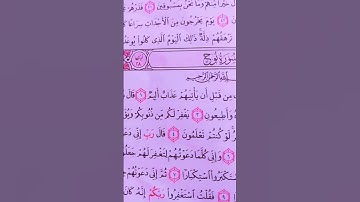 خَيْرًا مِّنْهُمْ وَمَا نَحْنُ بِمَسْبُوقِينَ ۝ فَذَرْهُمْ
۝ يَوْمَ يَخْرُجُونَ مِنَ ٱلْأَجْدَاثِ سِرَاعًا كَ
تَرْهَقُهُمْ ذِلَّةٌ ذَٰلِكَ ٱلْيَوْمُ ٱلَّذِى كَانُوا۟ يُوعَدُ
سُورَةُ نُوحٍ
بِسْمِ ٱللَّهِ ٱلرَّحْمَٰنِ ٱلرَّحِيمِ
مِن قَبْلِ أَن يَأْتِيَهُمْ عَذَابٌ أَلِيمٌ ۝ قَالَ
وَأَطِيعُونِ ۝ يَغْفِرْ لَكُم مِّن ذُنُوبِكُمْ وَيُؤَ
لَوْ كُنتُمْ تَعْلَمُونَ ۝ قَالَ رَبِّ إِنِّى دَعَ
وَإِنِّى كُلَّمَا دَعَوْتُهُمْ لِتَغْفِرَ لَهُمْ جَعَلُو
كْبَرُوا۟ ٱسْتِكْبَارًا ۝ ثُمَّ إِنِّى دَعَوْتُهُمْ
۝ فَقُلْتُ ٱسْتَغْفِرُوا۟ رَبَّكُمْ إِنَّهُۥ كَانَ